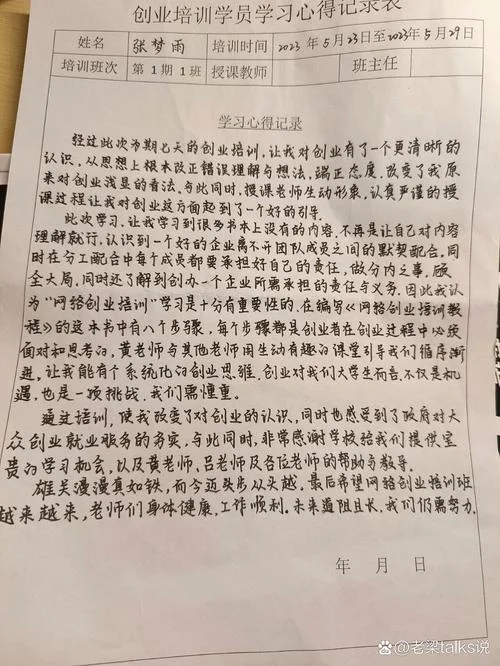 创业培训学员学习心得记录表
姓名 张梦雨 培训时间 2023年5月23日至2023年5月29日
培训班次 第1期1班 授课教师 班主任
学习心得记录
经过此次为期七天的创业培训，让我对创业有了一个更清晰的
认识，从思想上根本改正错误理解与想法，端正态度，改变了我原
来对创业浅显的看法，与此同时，授课老师生动形象、认真严谨的授
课过程让我对创业这方面起到了一个好的引导。
此次学习，让我学习到很多书本上没有的内容，不再是让自己对内容
理解就行，认识到一个好的企业离不开团队成员之间的默契配合，同
时在分工配合中每个成员都要承担好自己的责任，做分内之事，顾
全大局，同时还了解到创办一个企业所需承担的责任与义务。因此我认
为“网络创业培训”学习是十分有重要性的，在编写《网络创业培训教
程》的这本书中有八个步骤，每个步骤都是创业者在创业过程中必须
面对和思考的，黄老师与其他老师用生动有趣的课堂引导我们循序渐
进，让我能有个系统化的创业思维，创业对我们大学生而言，不仅是机
遇，也是一项挑战，我们需慎重。
通过培训，使我改变了对创业的认识，同时也感受到了政府对大
众创业就业服务的务实，与此同时，非常感谢学校给我们提供宝
贵的学习机会，以及黄老师，吕老师及各位老师的帮助与教导。
雄关漫漫真如铁，而今迈步从头越，最后希望网络创业培训班
越来越来，老师们身体健康，工作顺利。未来道阻且长，我们仍需努力．
年 月 日
@老梁talks说